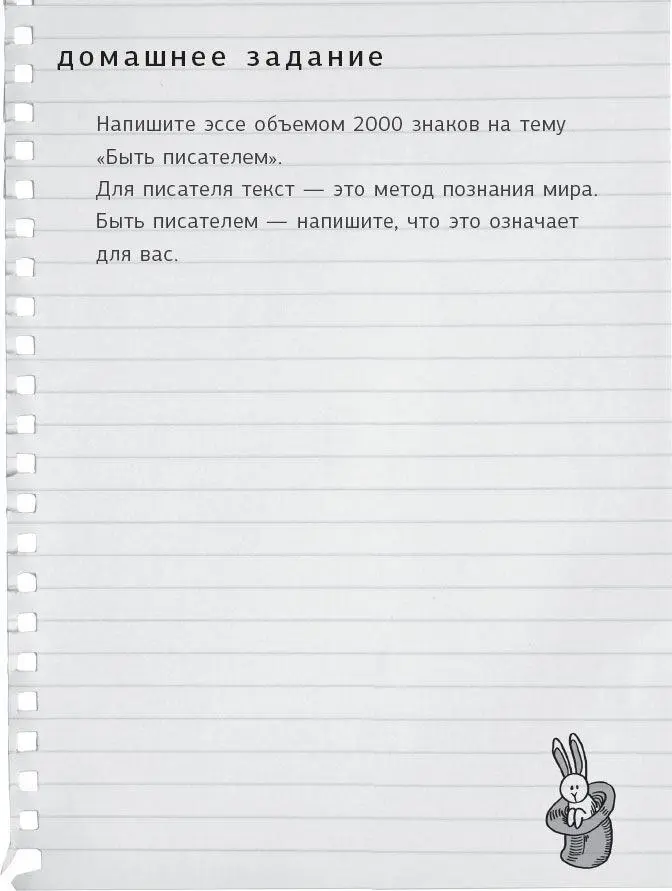 домашнее задание
Напишите эссе объемом 2000 знаков на тему
«Быть писателем».
Для писателя текст — это метод познания мира.
Быть писателем — напишите, что это означает
для вас.